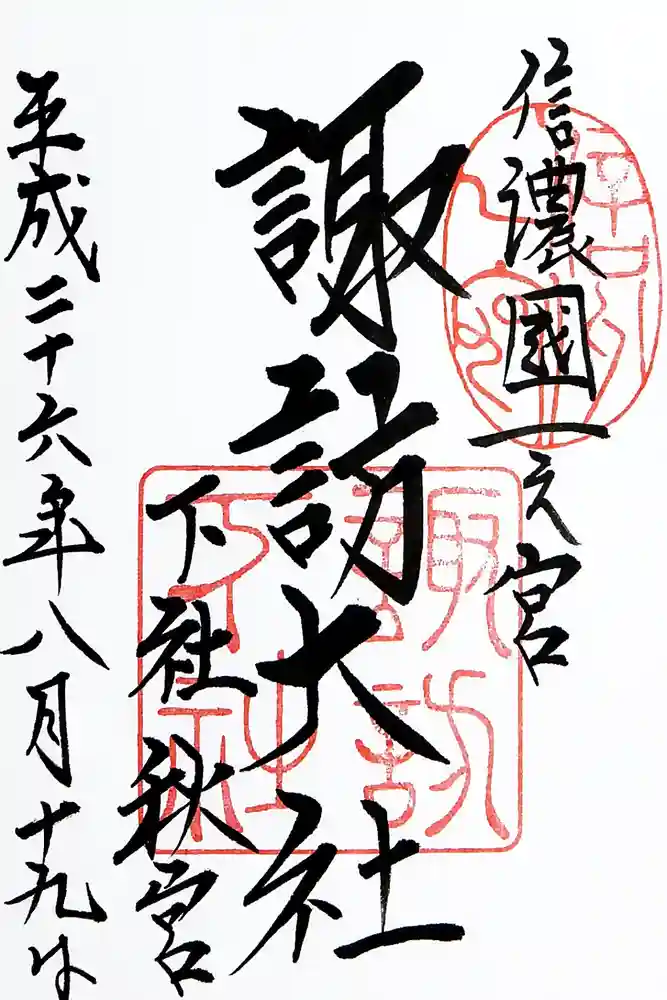 信濃國一之宮
諏訪大社
下社秋宮
平成二十六年八月十九日
諏訪
下社